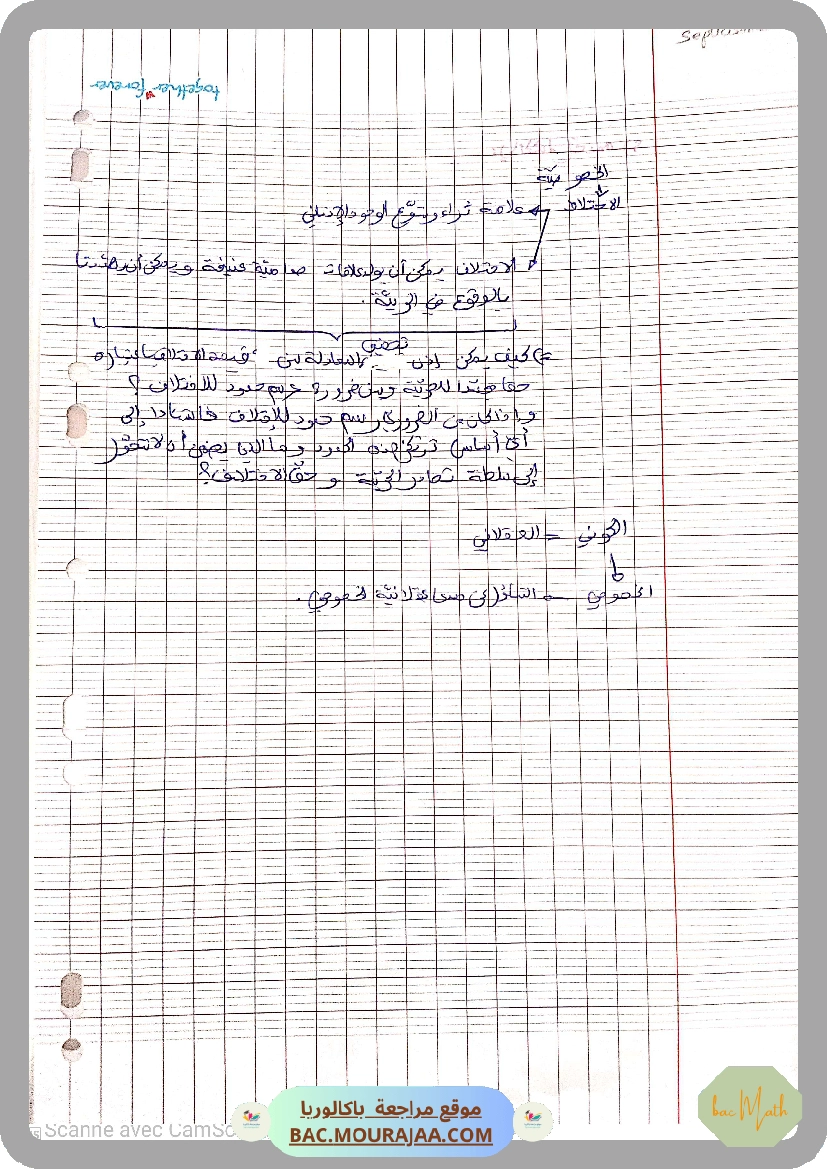 Septem
together forever
الخصوصية
الاختلاف ← علامة ثراء وتنوّع الوجود الإنساني
الاختلاف يمكن أن يولد علاقات صدامية عنيفة ويمكن أن يهددنا
بالوقوع في الريبيّة.
=> كيف يمكن إذن المعادلة بين قيمة الاختلاف باعتباره
حقا للحريّة وبين ضرورة رسم حدود للاختلاف؟
وإذا كان من الضروري رسم حدود للاختلاف فاستنادا إلى
أيّ أساس ترتكز هذه الحدود وما الذي يضمن أن لا تتحوّل
إلى سلطة تصادر الحريّة وحقّ الاختلاف؟
الكوني = العقلاني
الخصوصي = التساؤل عن مدى عقلانيّة الخصوصي.
Scanné avec CamSc
موقع مراجعة باكالوريا
BAC.MOURAJAA.COM
bac Math